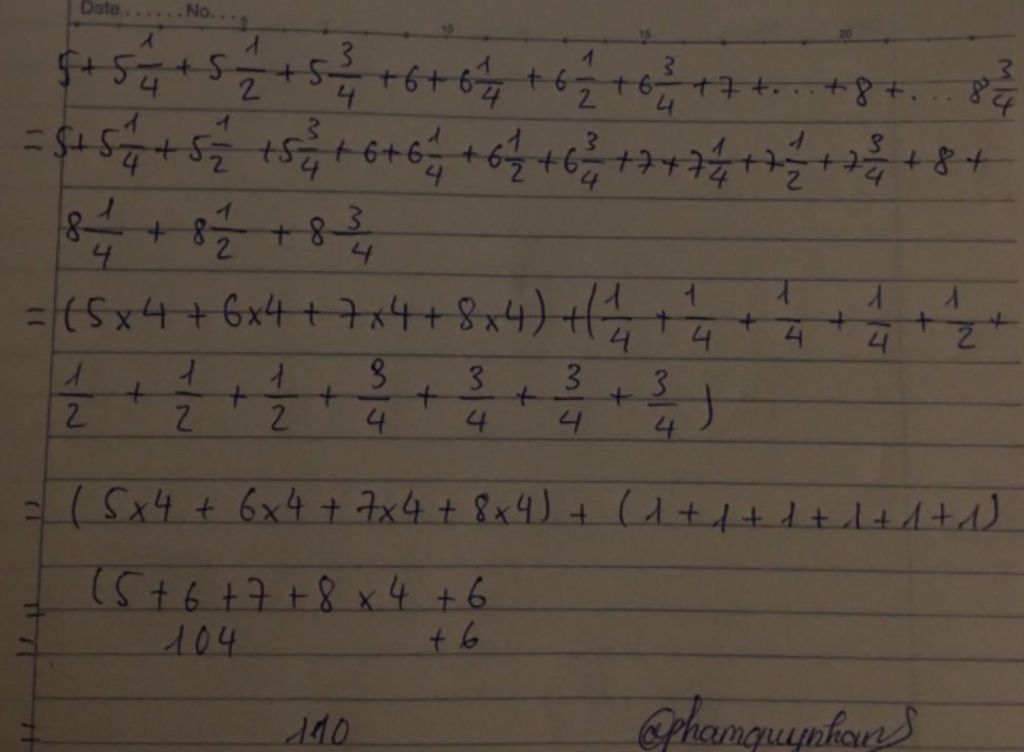 Date.......No....
5 10 15 20
5 + 5 1/4 + 5 1/2 + 5 3/4 + 6 + 6 1/4 + 6 1/2 + 6 3/4 + 7 + ... + 8 + ... 8 3/4
= 5 + 5 1/4 + 5 1/2 + 5 3/4 + 6 + 6 1/4 + 6 1/2 + 6 3/4 + 7 + 7 1/4 + 7 1/2 + 7 3/4 + 8 +
8 1/4 + 8 1/2 + 8 3/4
= (5 x 4 + 6 x 4 + 7 x 4 + 8 x 4) + (1/4 + 1/4 + 1/4 + 1/4 + 1/2 +
1/2 + 1/2 + 1/2 + 3/4 + 3/4 + 3/4 + 3/4)
= (5 x 4 + 6 x 4 + 7 x 4 + 8 x 4) + (1 + 1 + 1 + 1 + 1 + 1)
= (5 + 6 + 7 + 8 x 4 + 6
= 104 + 6
= 110 @phamquynhanS